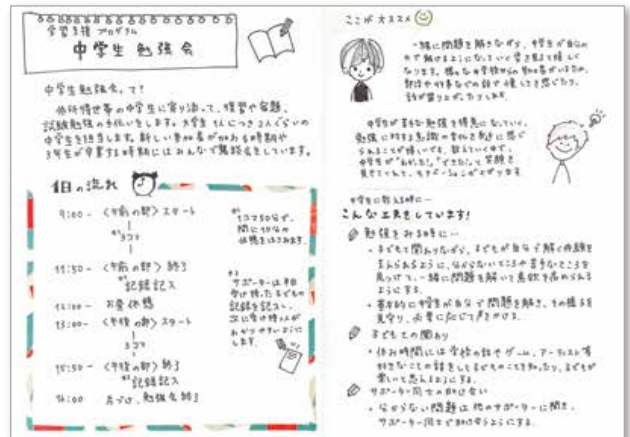 学習支援プログラム
中学生 勉強会
中学生勉強会って!
低所得世帯の中学生に寄り添って、復習や宿題、
試験勉強の手伝いをします。大学生1人につき2人ぐらいの
中学生を担当します。新しい参加者が加わる時期や
3年生が卒業する時期にはみんなで懇談会をしています。
1日の流れ
9:00 - 〈午前の部〉スタート
*1 3コマ
11:50 - 〈午前の部〉終了
*2 記録記入
12:00 - お昼休憩
13:00 - 〈午後の部〉スタート
3コマ
15:50 - 〈午後の部〉終了
*2 記録記入
16:00 片づけ、勉強会終了
*1
1コマ50分で、
間に10分の
休憩をはさみます。
*2
サポーターは半日
受け持った子どもの
記録を記入し、
次に受け持つ人が
わかりやすいように
します。
ここがオススメ
一緒に問題を解きながら、中学生が自分の
力で解けるようになっていく姿を見て嬉しく
なります。様々な学校からの参加者がいるため、
部活や行事などの話で
話が盛り上がったりします。
中学生が苦手な勉強を得意になっていく、
勉強に対する意識の変化を身近に感じ
られることが嬉しいです。教えていく中で、
中学生が「わかった!」「できた!」と笑顔を
見せてくれて、モチベーションが上がります
中学生に教える時に…
こんな工夫をしています!
勉強をみる時に…
・子どもと関わりながら、子どもが自分で解く体験を
支えられるように、分からないところや苦手なところを
見つけて、一緒に問題を解いて意欲を高められる
ようにする。
・基本的に中学生が自分で問題を解き、その様子を
見守り、必要に応じて声をかける。
子どもとの関わり
・休み時間には学校の話やゲーム、アーティスト等
好きなことの話をして子どものことを知ったり、子どもが
楽しいと思えるようにする。
サポーター同士の助け合い
・分からない問題は他のサポーターに聞き、
サポーター同士で助け合うようにする。